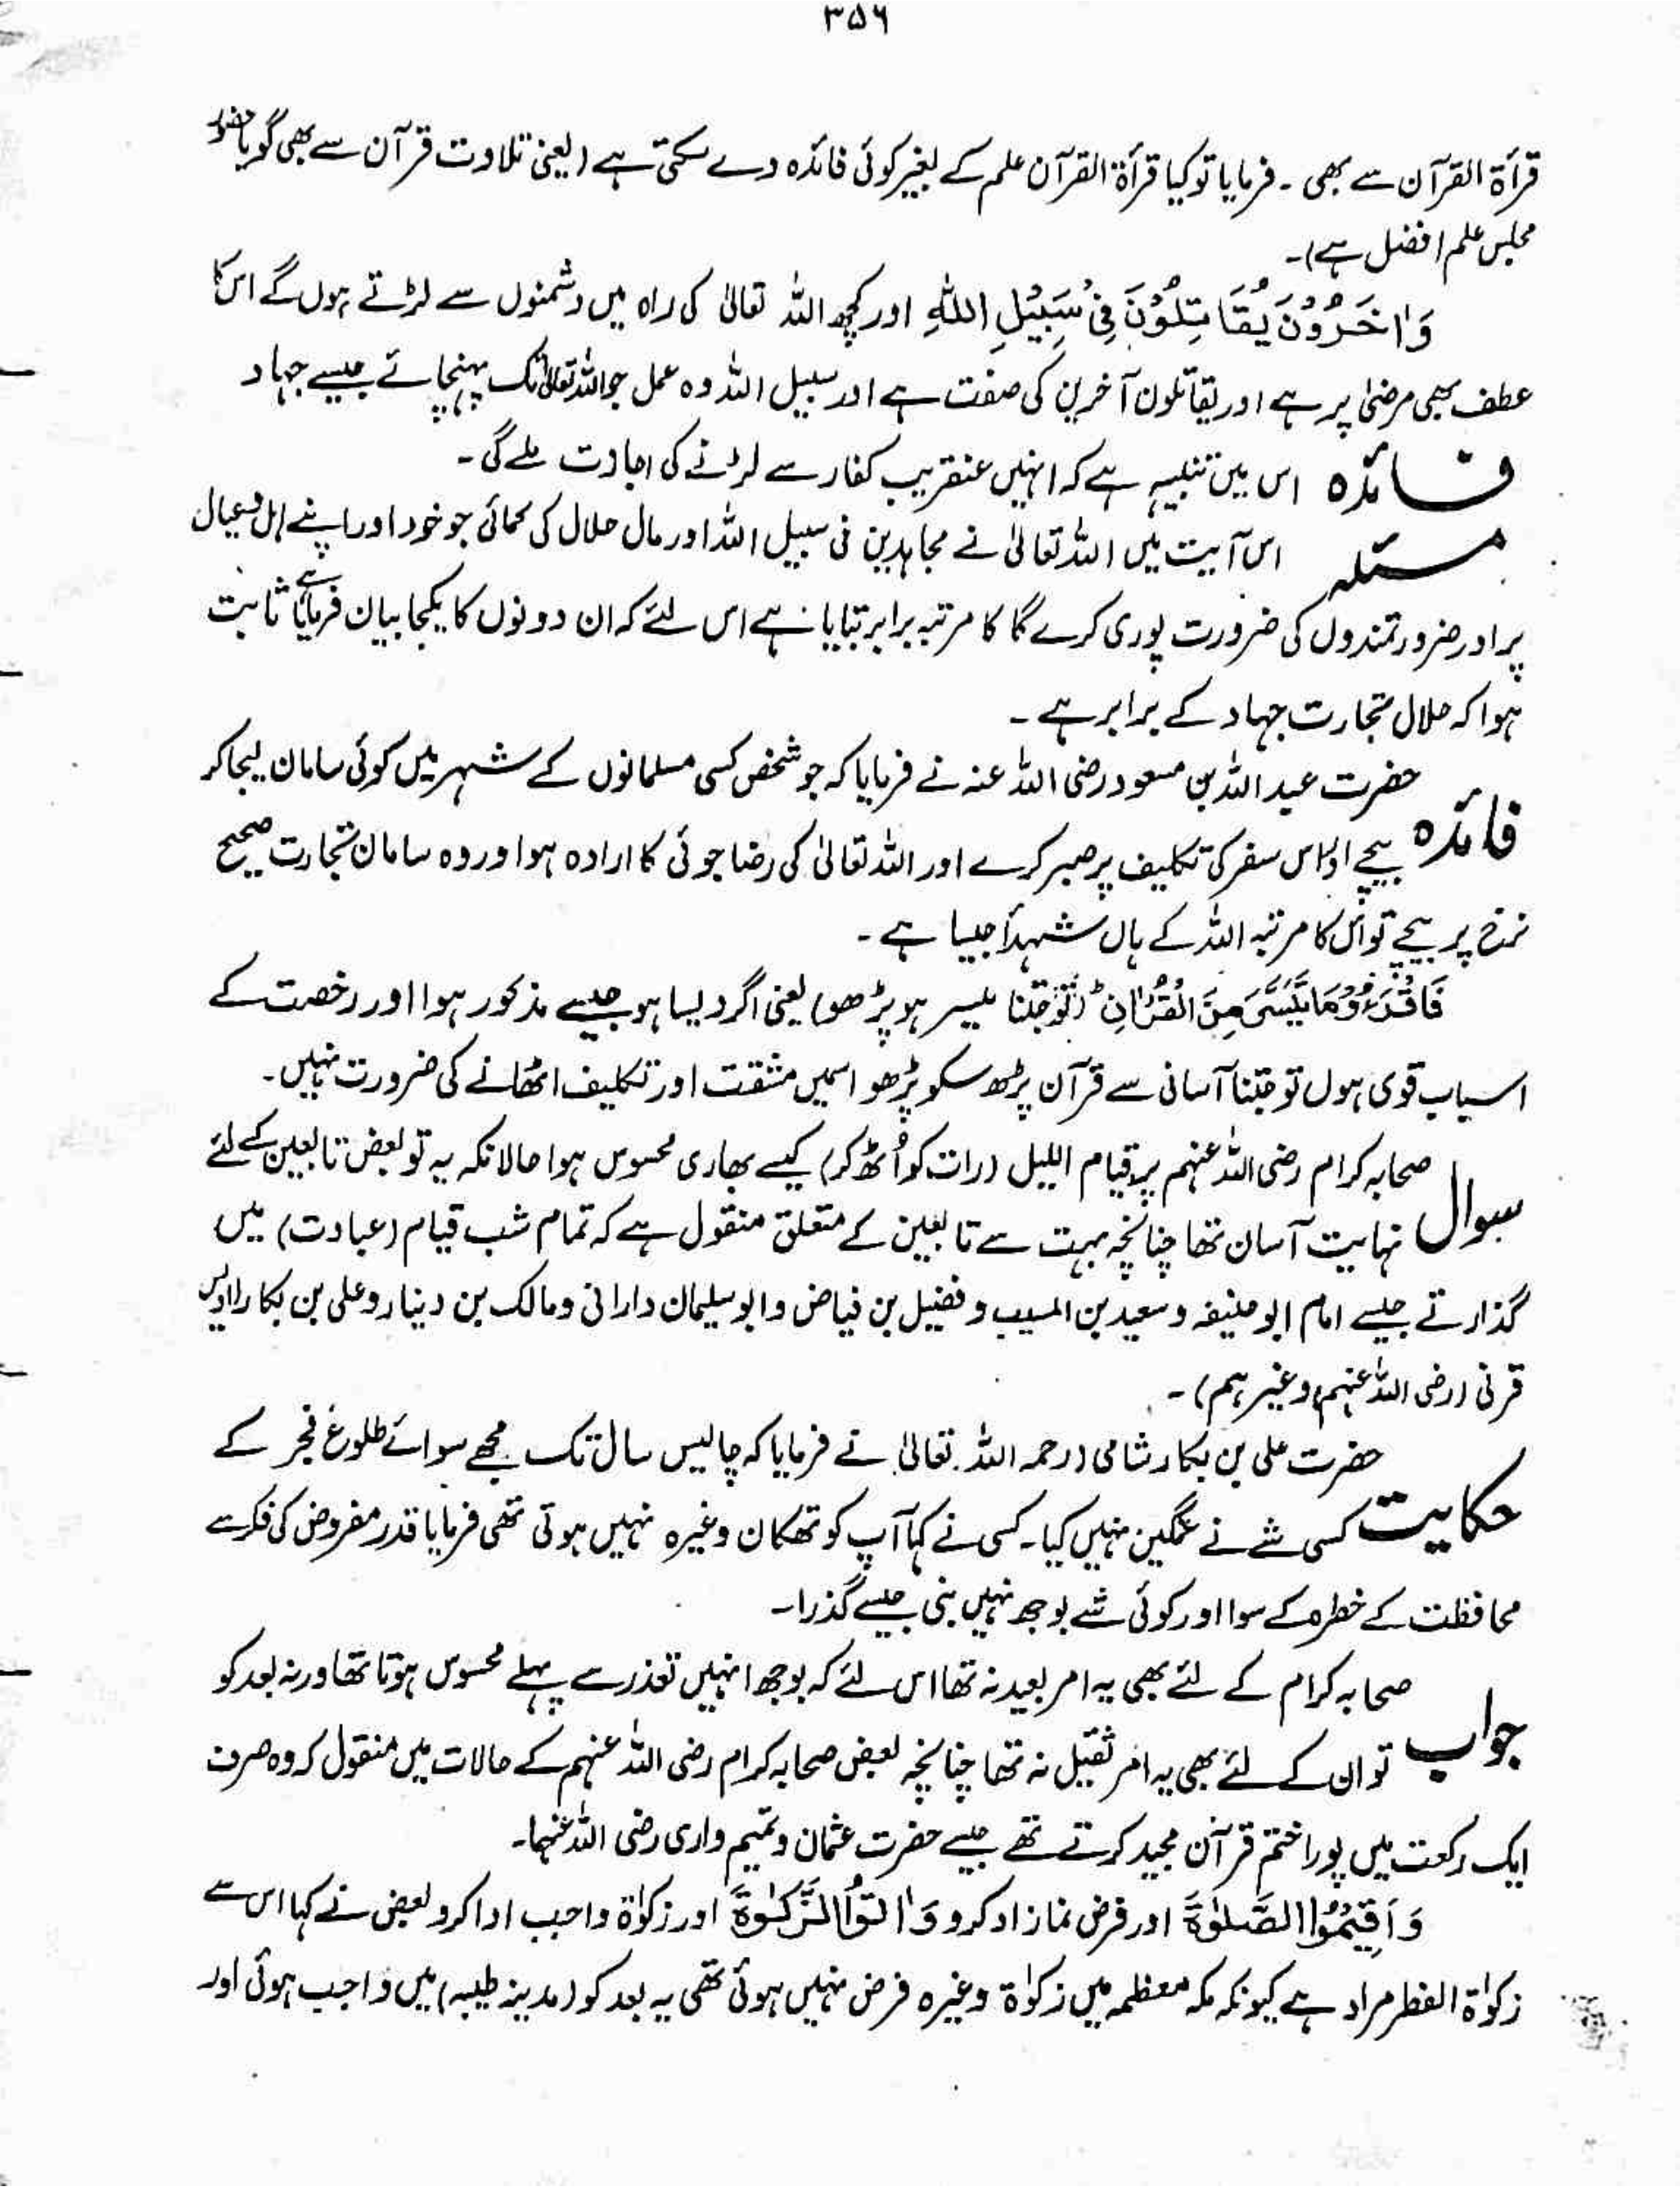 ۳۵۶
قرأۃ القرآن سے بھی ۔ فرمایا تو کیا قرأۃ القرآن علم کے بغیر کوئی فائدہ دے سکتی ہے (یعنی تلاوت قرآن سے بھی گویا حضور
مجلس علم افضل ہے)۔
وَاٰخَرُوْنَ یُقَاتِلُوْنَ فِیْ سَبِیْلِ اللّٰہِ اور کچھ اللہ تعالیٰ کی راہ میں دشمنوں سے لڑتے ہوں گے اس کا
عطف بھی مرضیٰ پر ہے اور یقاتلون آخرین کی صفت ہے اور سبیل اللہ وہ عمل جو اللہ تعالیٰ تک پہنچائے جیسے جہاد
فائدہ اس میں تنبیہ ہے کہ انہیں عنقریب کفار سے لڑنے کی اجازت ملے گی ۔
مسئلہ اس آیت میں اللہ تعالیٰ نے مجاہدین فی سبیل اللہ اور مال حلال کی کمائی جو خود اور اپنے اہل و عیال
پر اور ضرورتمندوں کی ضرورت پوری کرے گا کا مرتبہ برابر بتایا ہے اس لئے کہ ان دونوں کا یکجا بیان فرمایا ہے ثابت
ہوا کہ حلال تجارت جہاد کے برابر ہے ۔
حضرت عبد اللہ بن مسعود رضی اللہ عنہ نے فرمایا کہ جو شخص کسی مسلمانوں کے شہر میں کوئی سامان لیجا کر
فائدہ بیچے اور اس سفر کی تکلیف پر صبر کرے اور اللہ تعالیٰ کی رضا جوئی کا ارادہ ہو اور وہ سامان تجارت صحیح
نرخ پر بیچے تو اس کا مرتبہ اللہ کے ہاں شہداً جیسا ہے ۔
فَاقْرَءُوْا مَا تَیَسَّرَ مِنَ الْقُرْاٰنِ (تو جتنا میسر ہو پڑھو) یعنی اگر ویسا ہو جیسے مذکور ہوا اور رخصت کے
اسباب قوی ہوں تو جتنا آسانی سے قرآن پڑھ سکو پڑھو اسمیں مشقت اور تکلیف اٹھانے کی ضرورت نہیں ۔
صحابہ کرام رضی اللہ عنہم پر قیام اللیل (رات کو اُٹھ کر) کیسے بھاری محسوس ہوا حالانکہ یہ تو بعض تابعین کے لئے
سوال نہایت آسان تھا چنانچہ بہت سے تابعین کے متعلق منقول ہے کہ تمام شب قیام (عبادت) میں
گذارتے جیسے امام ابو حنیفہ و سعید بن المسیب و فضیل بن فیاض و ابو سلیمان دارانی و مالک بن دینار و علی بن بکار (اویس
قرنی (رضی اللہ عنہم) وغیرہم) ۔
حضرت علی بن بکار شامی (رحمہ اللہ تعالیٰ نے فرمایا کہ چالیس سال تک مجھے سوائے طلوع فجر کے
حکایت کسی شے نے غمگین نہیں کیا ۔ کسی نے کہا آپ کو تھکان وغیرہ نہیں ہوتی تھی فرمایا قدر مفروض کی فکر سے
محافظت کے خطرہ کے سوا اور کوئی شے بوجھ نہیں بنی جیسے گذرا ۔
صحابہ کرام کے لئے بھی یہ امر بعید نہ تھا اس لئے کہ بوجھ انہیں تعذر سے پہلے محسوس ہوتا تھا ورنہ بعد کو
جواب تو ان کے لئے بھی یہ امر ثقیل نہ تھا چنانچہ بعض صحابہ کرام رضی اللہ عنہم کے حالات میں منقول کہ وہ صرف
ایک رکعت میں پورا ختم قرآن مجید کرتے تھے جیسے حضرت عثمان و تمیم واری رضی اللہ عنہما ۔
وَاَقِیْمُوا الصَّلٰوۃَ اور فرض نماز اد کرو وَاٰتُوا الزَّکٰوۃَ اور زکوٰۃ واجب ادا کرو بعض نے کہا اس سے
زکوٰۃ الفطر مراد ہے کیونکہ مکہ معظمہ میں زکوٰۃ وغیرہ فرض نہیں ہوئی تھی یہ بعد کو (مدینہ طیبہ) میں واجب ہوئی اور